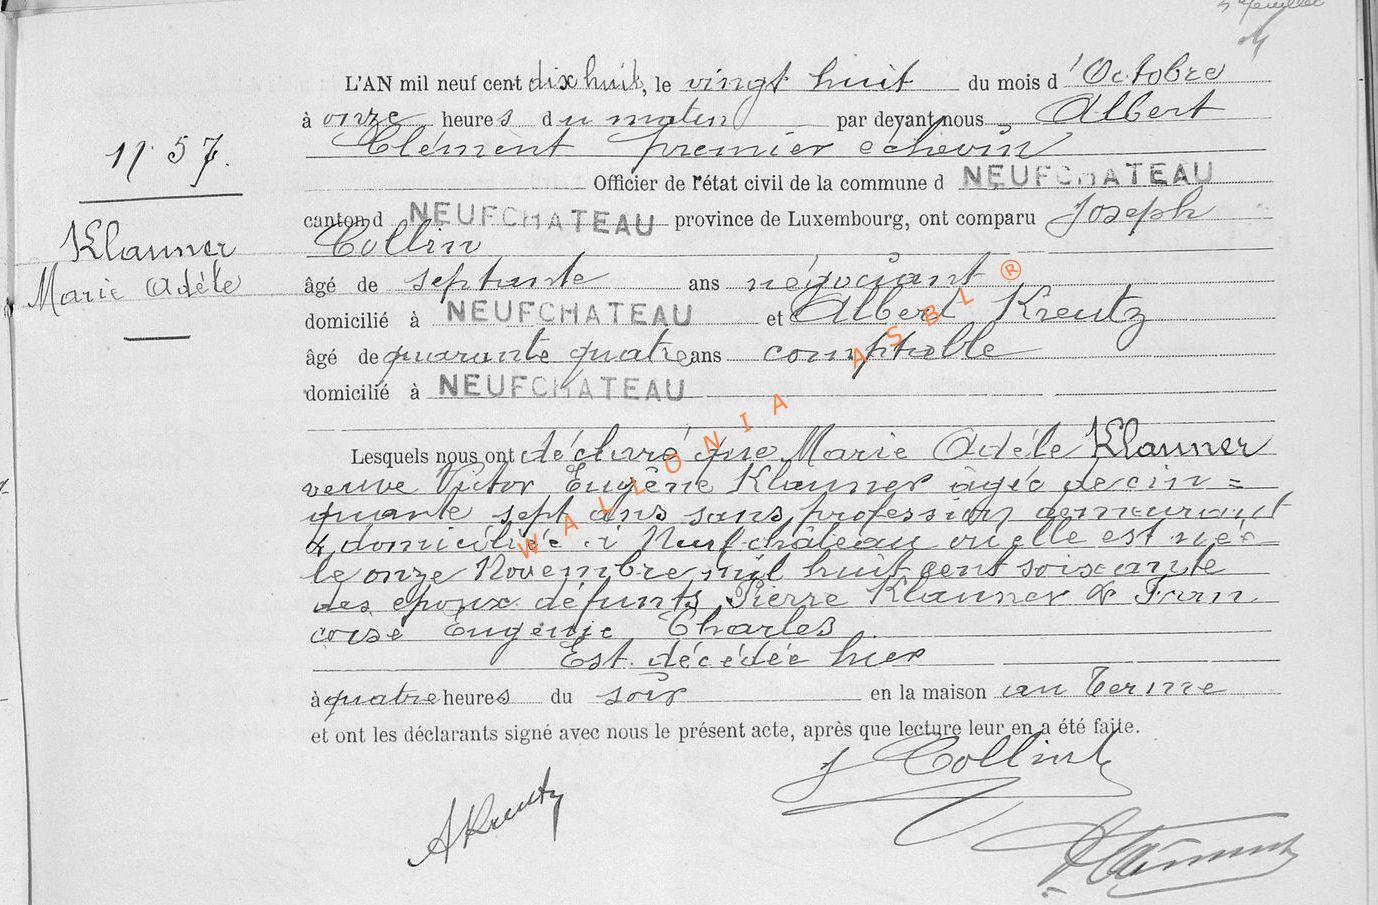 5e feuillet
L'AN mil neuf cent dix huit, le vingt huit du mois d'Octobre
à onze heures du matin par devant nous Albert
Clément premier échevin
Officier de l'état civil de la commune d NEUFCHATEAU
canton d NEUFCHATEAU province de Luxembourg, ont comparu Joseph
Collin
âgé de septante ans négociant
domicilié à NEUFCHATEAU et Albert Kreutz
âgé de quarante quatre ans comptable
domicilié à NEUFCHATEAU
Lesquels nous ont déclaré que Marie Adèle Klauner
veuve Victor Eugène Klauner âgée de cin=
quante sept ans sans profession demeurant
& domiciliée à Neufchâteau où elle est née
le onze Novembre mil huit cent soixante
des époux défunts Pierre Klauner & Fran
coise Eugénie Charles
Est décédée hier
à quatre heures du soir en la maison au Terme
et ont les déclarants signé avec nous le présent acte, après que lecture leur en a été faite.
J Collin
AKreutz
AClément
N° 57.
Klauner
Marie Adèle
WALLONIA ASBL ®